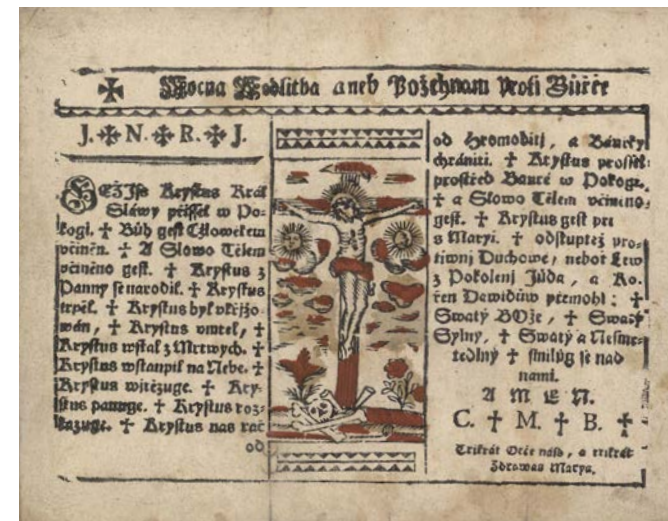 ✠ Mocna Modlitba aneb Požehnani Proti Bůřce
J. ✠ N. ✠ R. ✠ J.
GEŽJss Krystus Král
Sláwy přissel w Po-
kogi. ✝ Bůh gest Cžlowěkem
včiněn. ✝ A Slowo Tělem
včiněno gest. ✝ Krystus z
Panny se narodil. ✝ Krystus
trpěl. ✝ Krystus byl vkřižo-
wán, ✝ Krystus vmřel, ✝
Krystus wstal z Mrtwych. ✝
Krystus wstaupil na Nebe. ✝
Krystus witězuge. ✝ Kry-
stus panuge. ✝ Krystus roz-
kazuge. ✝ Krystus nas rač
od
od Hromobitj, a Bauřky
chrániti. ✝ Krystus prossel
prostřed Bauře w Pokogi.
✝ a Slowo Tělem včiněno
gest. ✝ Krystus gest při
s Maryi. ✝ odstuptež pro-
tiwnj Duchowé, neboť Lew
z Pokolenj Júda, a Ko-
řen Dawidůw přemohl: ✝
Swatý BOže, ✝ Swatý
Sylný, ✝ Swatý a Nesmr-
tedlný ✝ smilůg se nad
nami.
A M E N.
C. ✝ M. ✝ B. ✝
Třikrát Otče náss, a třikrát
Zdrawas Marya.